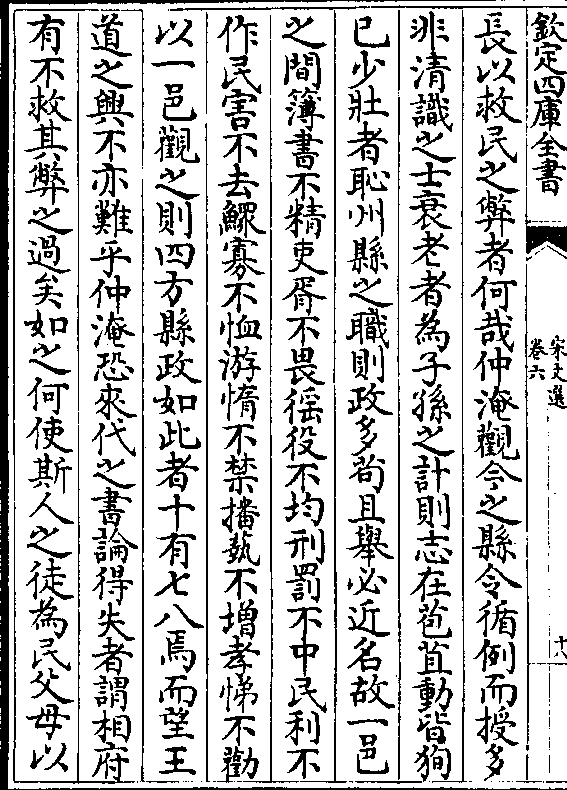 欽定四庫全書
宋文選
卷六
十八
長以救民之弊者何哉仲淹觀今之縣令循例而授多
非清識之士衰老者為子孫之計則志在苞苴動皆狥
已少壯者恥州縣之職則政多茍且舉必近名故一邑
之間簿書不精吏胥不畏徭役不均刑罰不中民利不
作民害不去鰥寡不恤游惰不禁播蓺不增孝悌不勸
以一邑觀之則四方縣政如此者十有七八焉而望王
道之興不亦難乎仲淹恐來代之書論得失者謂相府
有不救其弊之過矣如之何使斯人之徒為民父母以